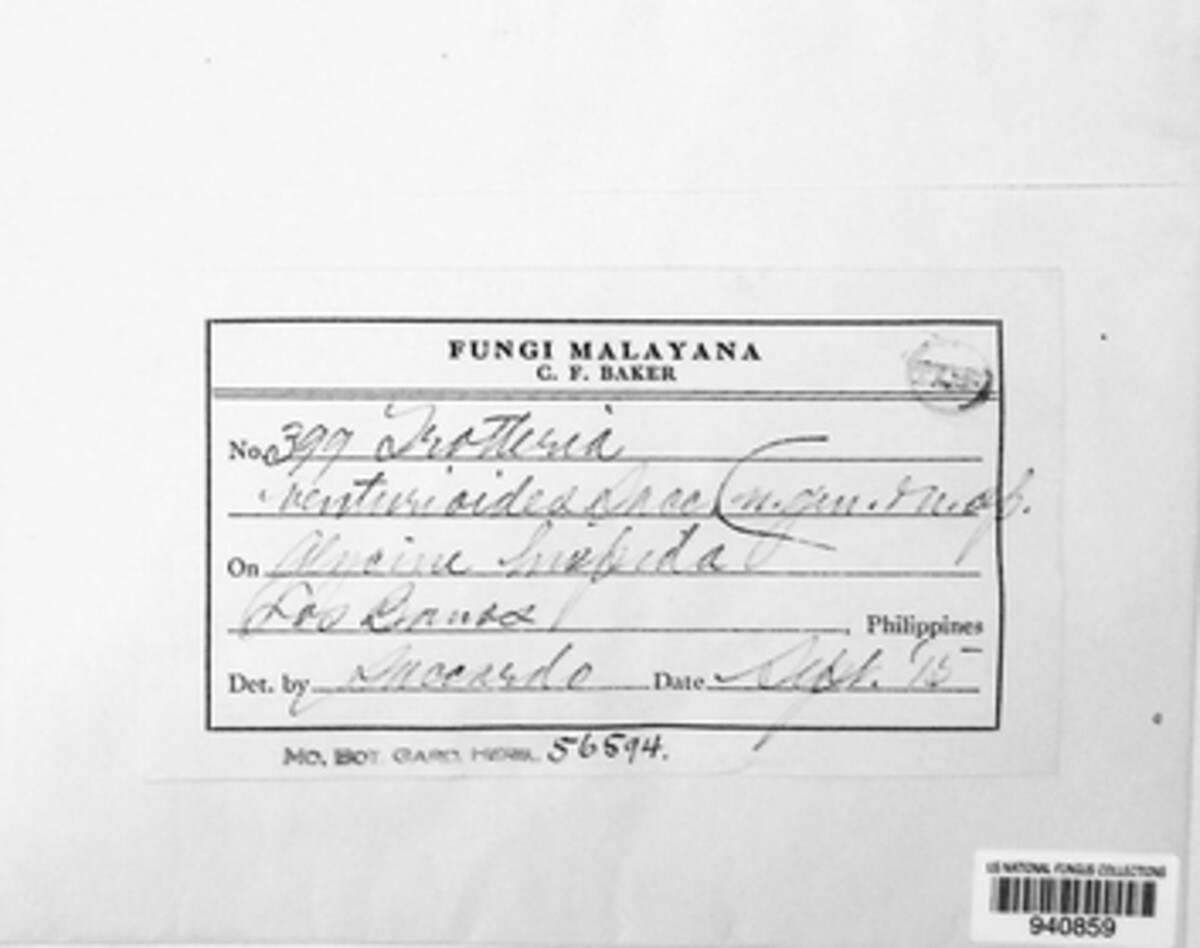 FUNGI MALAYANA
C. F. BAKER
No. 399 Trotteria
venturioides Sacc (n.gen. & n.sp.
On Glycine hispida
Los Banos, Philippines
Det. by Saccardo Date Sept. '15
MO. BOT. GARD. HERB. 56594.
US NATIONAL FUNGUS COLLECTIONS
940859